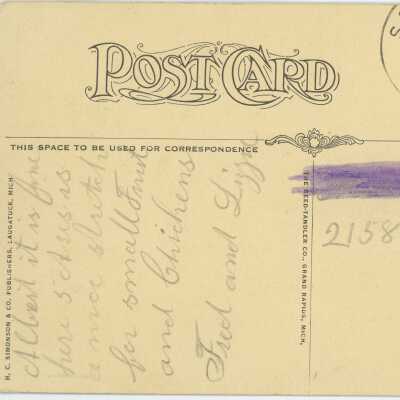 POST CARD
THIS SPACE TO BE USED FOR CORRESPONDENCE
H. C. SIMONSON & CO., PUBLISHERS, LAUGATUCK, MICH.
Albert it is fine
here 5 acres is
a nice
for small Fruit
and Chickens
Fred and
THE REED-TANDLER CO., GRAND RAPIDS, MICH.
2158